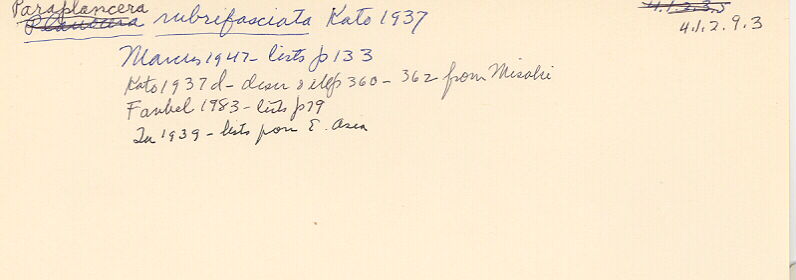 Paraplancera 4.1.2.3.5
Planocera rubrifasciata Kato 1937 4.1.2.9.3
Marcus 1947 - lists p 133
Kato 1937d - descr & ill p 360 - 362 from Misaki
Faubel 1983 - lists p 79
Tu 1939 - lists from E. Asia